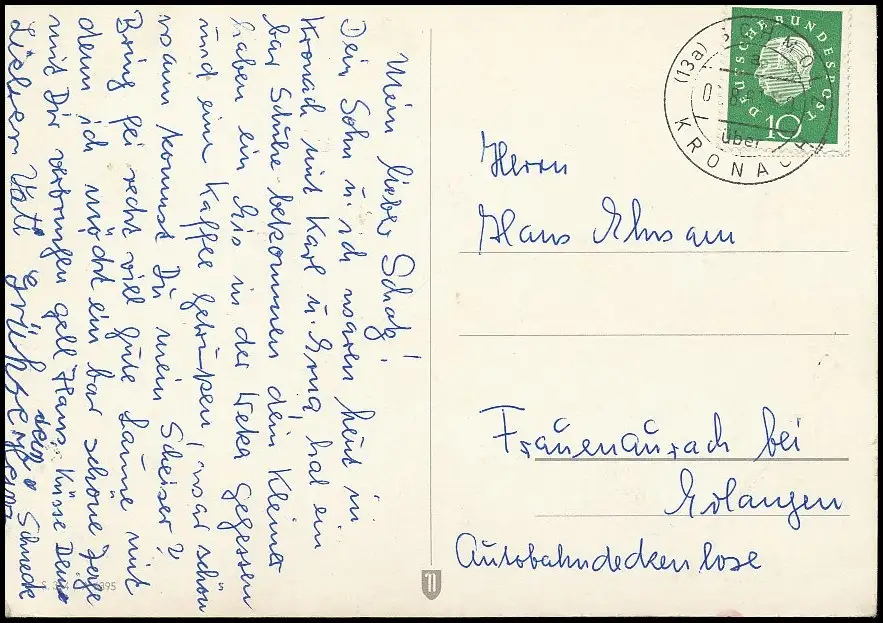 Mein lieber Schatz!
Dein Sohn u. ich waren heut in
Kronach mit Karl u. Erna, hat ein
bar Schuhe bekommen dein Kleiner
haben ein Eis in der Weka gegessen
und ein Kaffee getrunken, war schön
wann kommst Du mein Scheiser?
Bring fei recht viel gute Laune mit
denn ich möcht ein bar schöne Tage
mit Dir verbringen gell Hans, Küsse Deine
Schneck
Lieben Vati Grüße dein
DEUTSCHE BUNDESPOST
10
(13a)
über
KRONACH
Herrn
Hans Ehrsam
Frauenaurach bei
Erlangen
Autobahndeckenlose